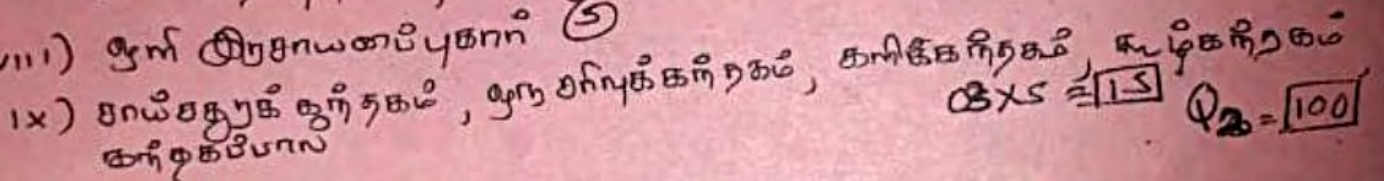 viii) ஒளி இரசாயனப்புகார் (5)
ix) சாய்சதுரக் கந்தகம், ஒரு சரிவுக்கந்தகம், களிக்கந்தகம், கூழ்கந்தகம்
கந்தகப்பால் 03×5 = 15 Q2 = 100